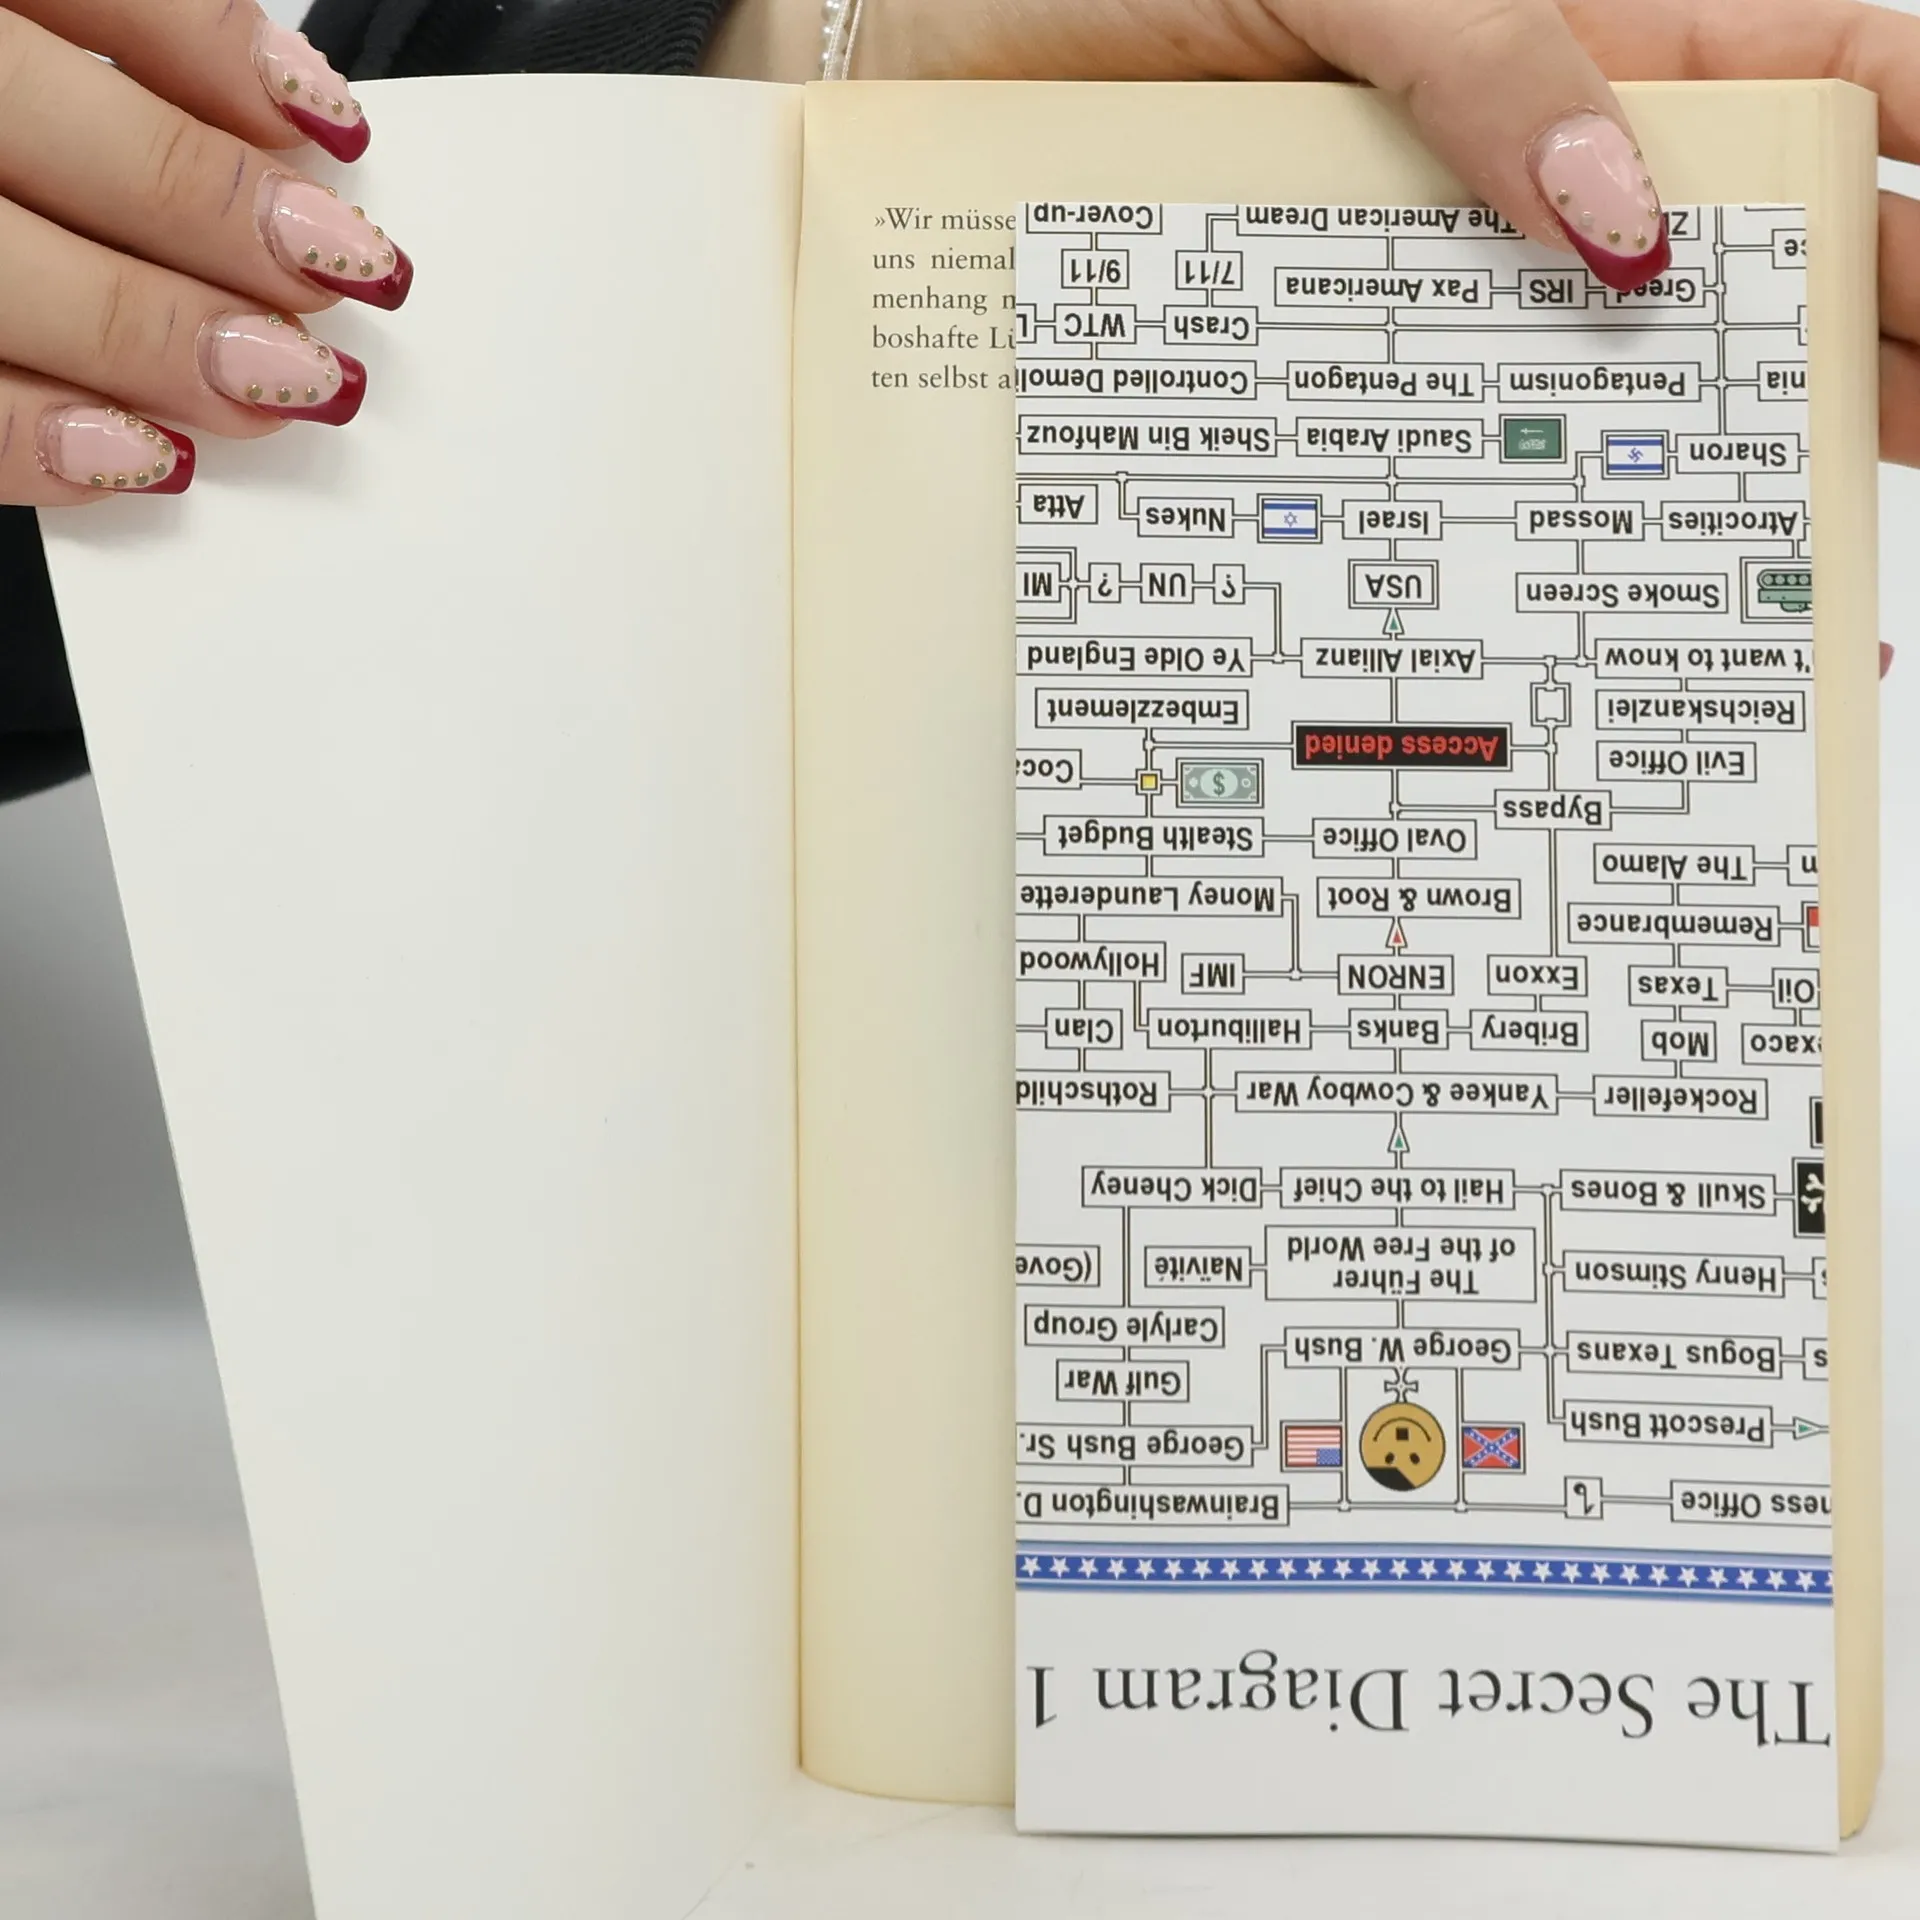 »Wir müsse
uns niemal
menhang
boshafte Lü
ten selbst a
The Secret Diagram 1
ness Office Brainwashington D.
Prescott Bush George Bush Sr.
Gulf War
s Bogus Texans George W. Bush Carlyle Group
Henry Stimson The Führer Naïvité (Gove
of the Free World
Skull & Bones Hail to the Chief Dick Cheney
Rockefeller Yankee & Cowboy War Rothschild
exaco Mob Bribery Banks Halliburton Clan
Oil Texas Exxon ENRON IMF Hollywood
Remembrance Brown & Root Money Launderette
n The Alamo Oval Office Stealth Budget
Bypass $ Coca
Evil Office Access denied
Reichskanzlei Embezzlement
't want to know Axial Allianz Ye Olde England
Smoke Screen USA ? UN ? MI
Atrocities Mossad Israel Nukes Atta
Sharon Saudi Arabia Sheik Bin Mahfouz
nia Pentagonism The Pentagon Controlled Demoli
Crash WTC L
Greed IRS Pax Americana 7/11 9/11
ce The American Dream Cover-up